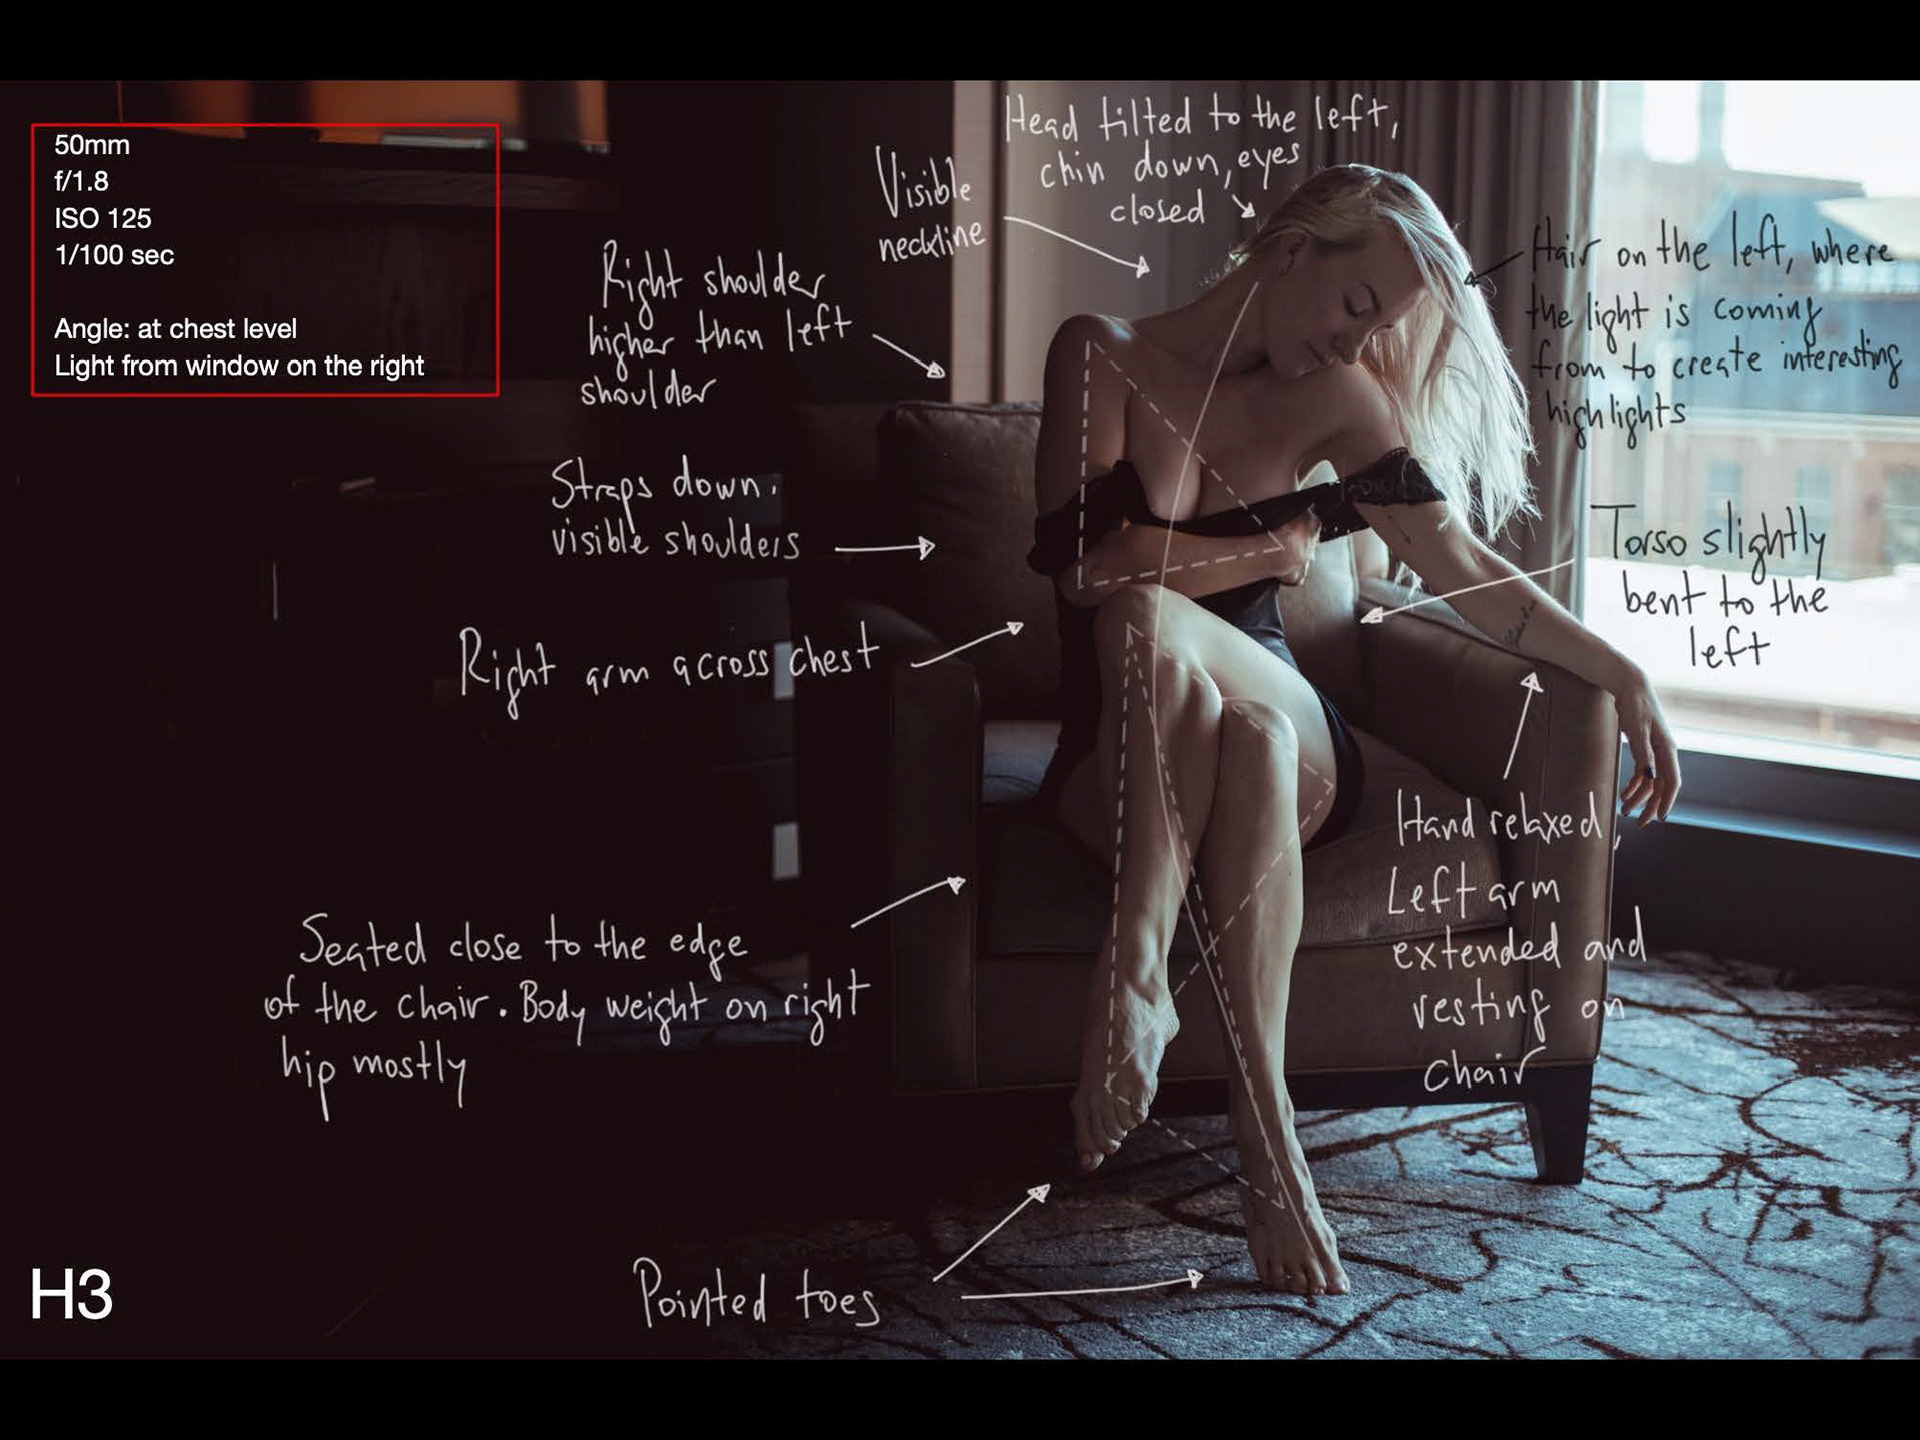 50mm
f/1.8
ISO 125
1/100 sec
Angle: at chest level
Light from window on the right
Head tilted to the left,
chin down, eyes
closed
Visible
neckline
Right shoulder
higher than left
shoulder
Hair on the left, where
the light is coming
from to create interesting
highlights
Straps down.
visible shoulders
Torso slightly
bent to the
left
Right arm across chest
Hand relaxed,
Left arm
extended and
resting on
chair
Seated close to the edge
of the chair. Body weight on right
hip mostly
Pointed toes
H3